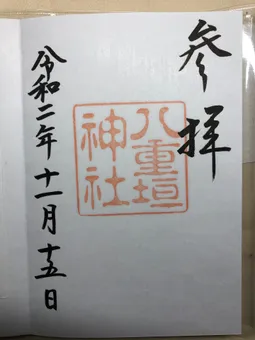 参拝
八重垣
神社
令和二年十一月十五日